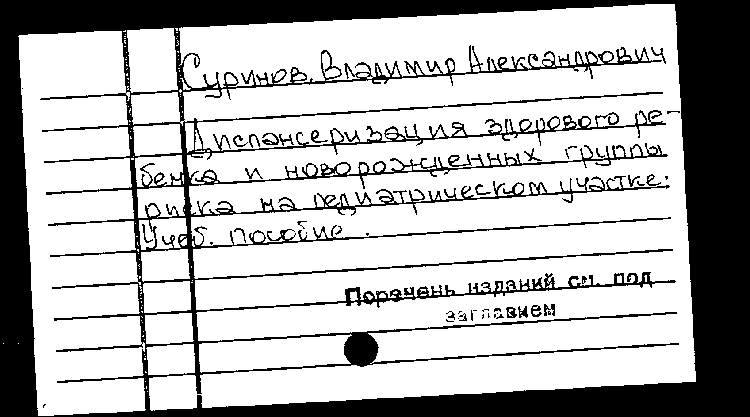 Суринов, Владимир Александрович
Диспансеризация здорового ре-
бенка и новорожденных группы
риска на педиатрическом участке:
Учеб. пособие.
Перечень изданий см. под
заглавием